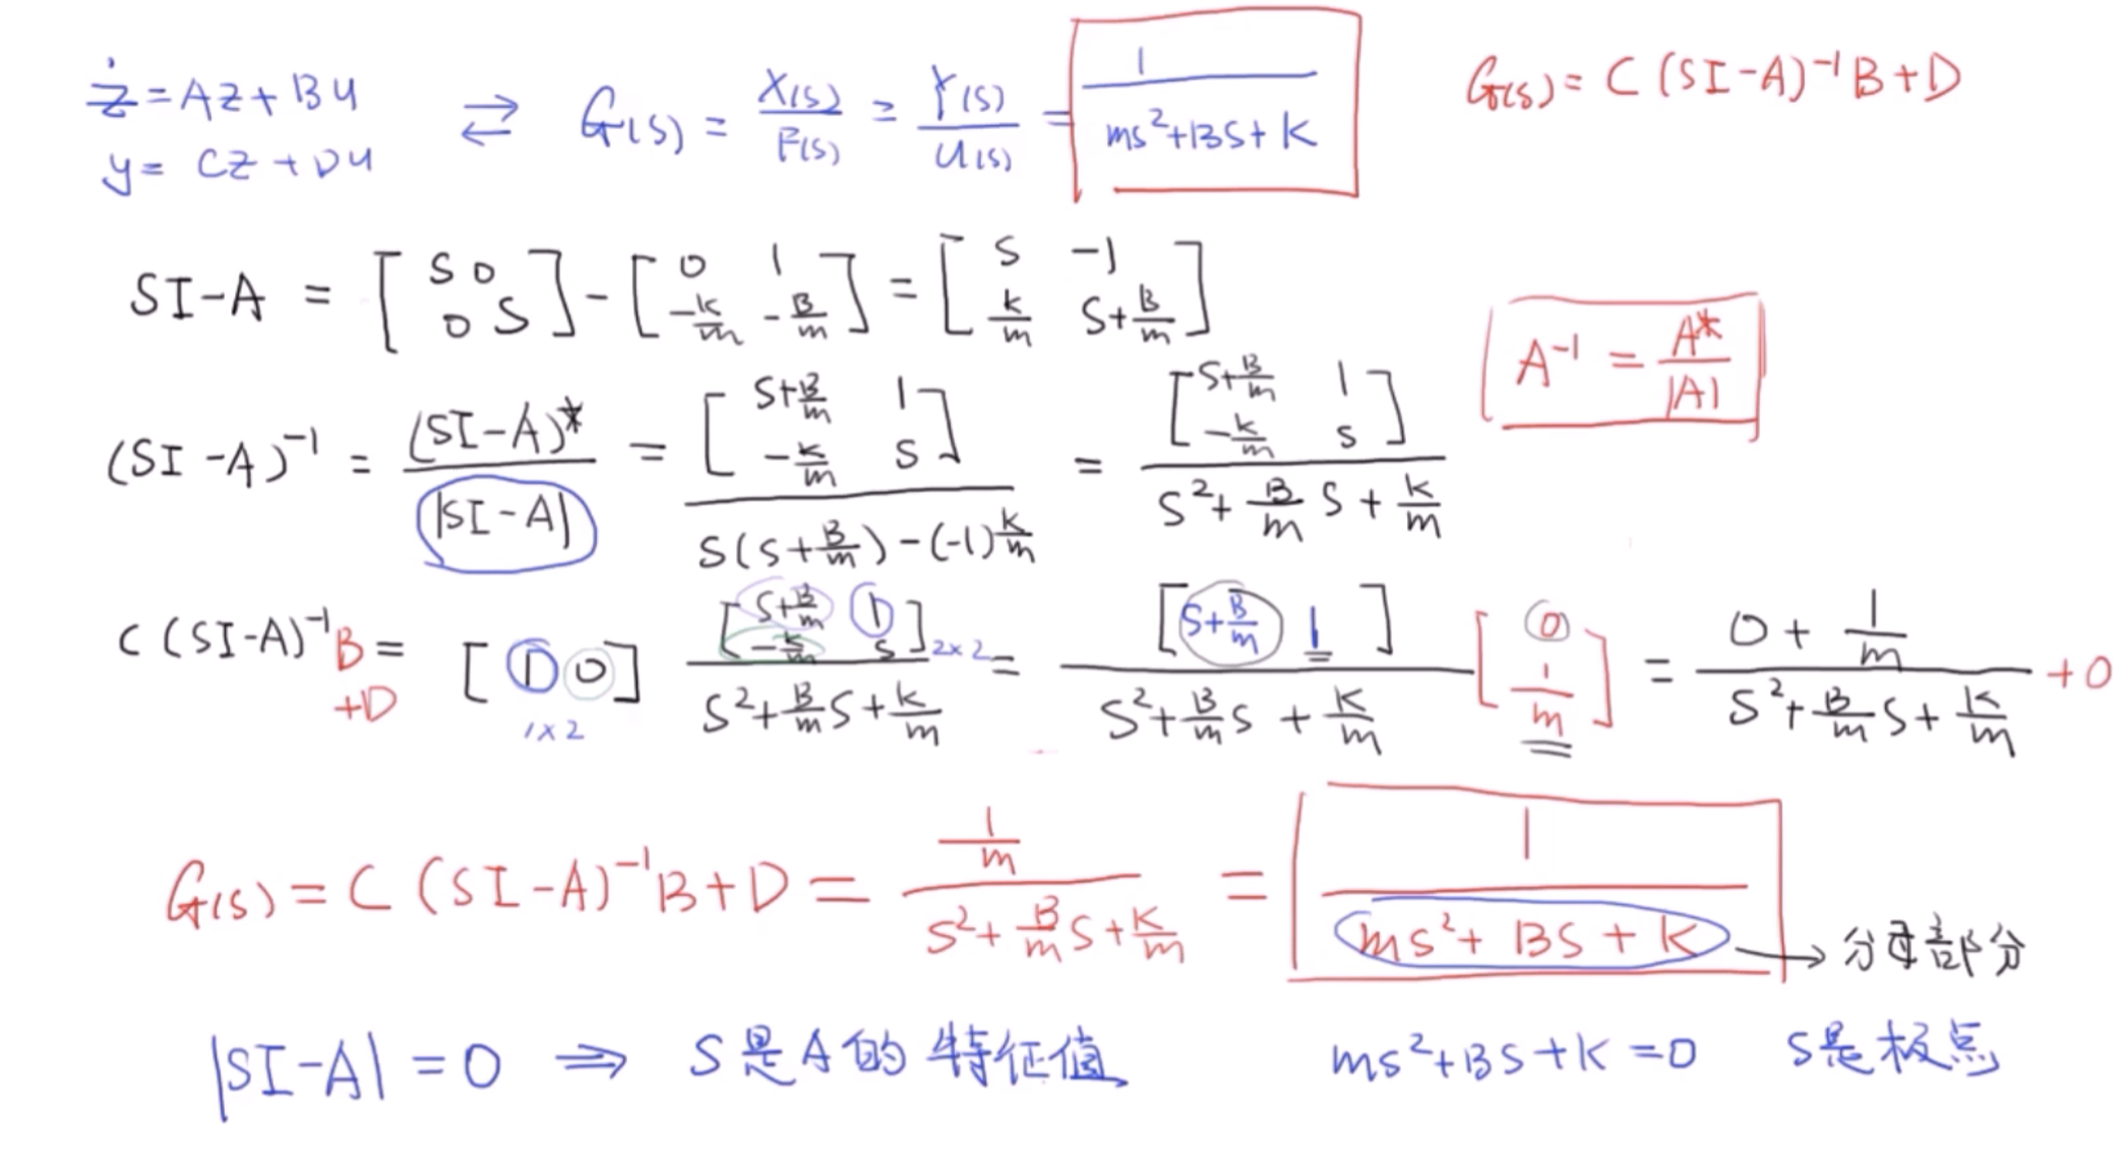 ż = Az + Bu ⇄ G(s) = X(s)/F(s) = Y(s)/U(s) = 1/(ms²+Bs+K) G(s) = C(SI-A)⁻¹B+D
y = Cz + Du
SI-A = [S 0; 0 S] - [0 1; -k/m -B/m] = [S -1; k/m S+B/m]
A⁻¹ = A*/|A|
(SI-A)⁻¹ = (SI-A)*/|SI-A| = [S+B/m 1; -k/m S]/(S(S+B/m)-(-1)k/m) = [S+B/m 1; -k/m S]/(S²+B/m S+k/m)
C(SI-A)⁻¹B+D = [1 0] 1×2 [S+B/m 1; -k/m S]/(S²+B/m S+k/m) 2×2 = [S+B/m 1]/(S²+B/m S+k/m) [0; 1/m] = (0+1/m)/(S²+B/m S+k/m) +0
G(s) = C(SI-A)⁻¹B+D = (1/m)/(S²+B/m S+K/m) = 1/(ms²+Bs+K) → 分母部分
|SI-A| = 0 ⇒ S是A的特征值 ms²+Bs+K=0 S是极点